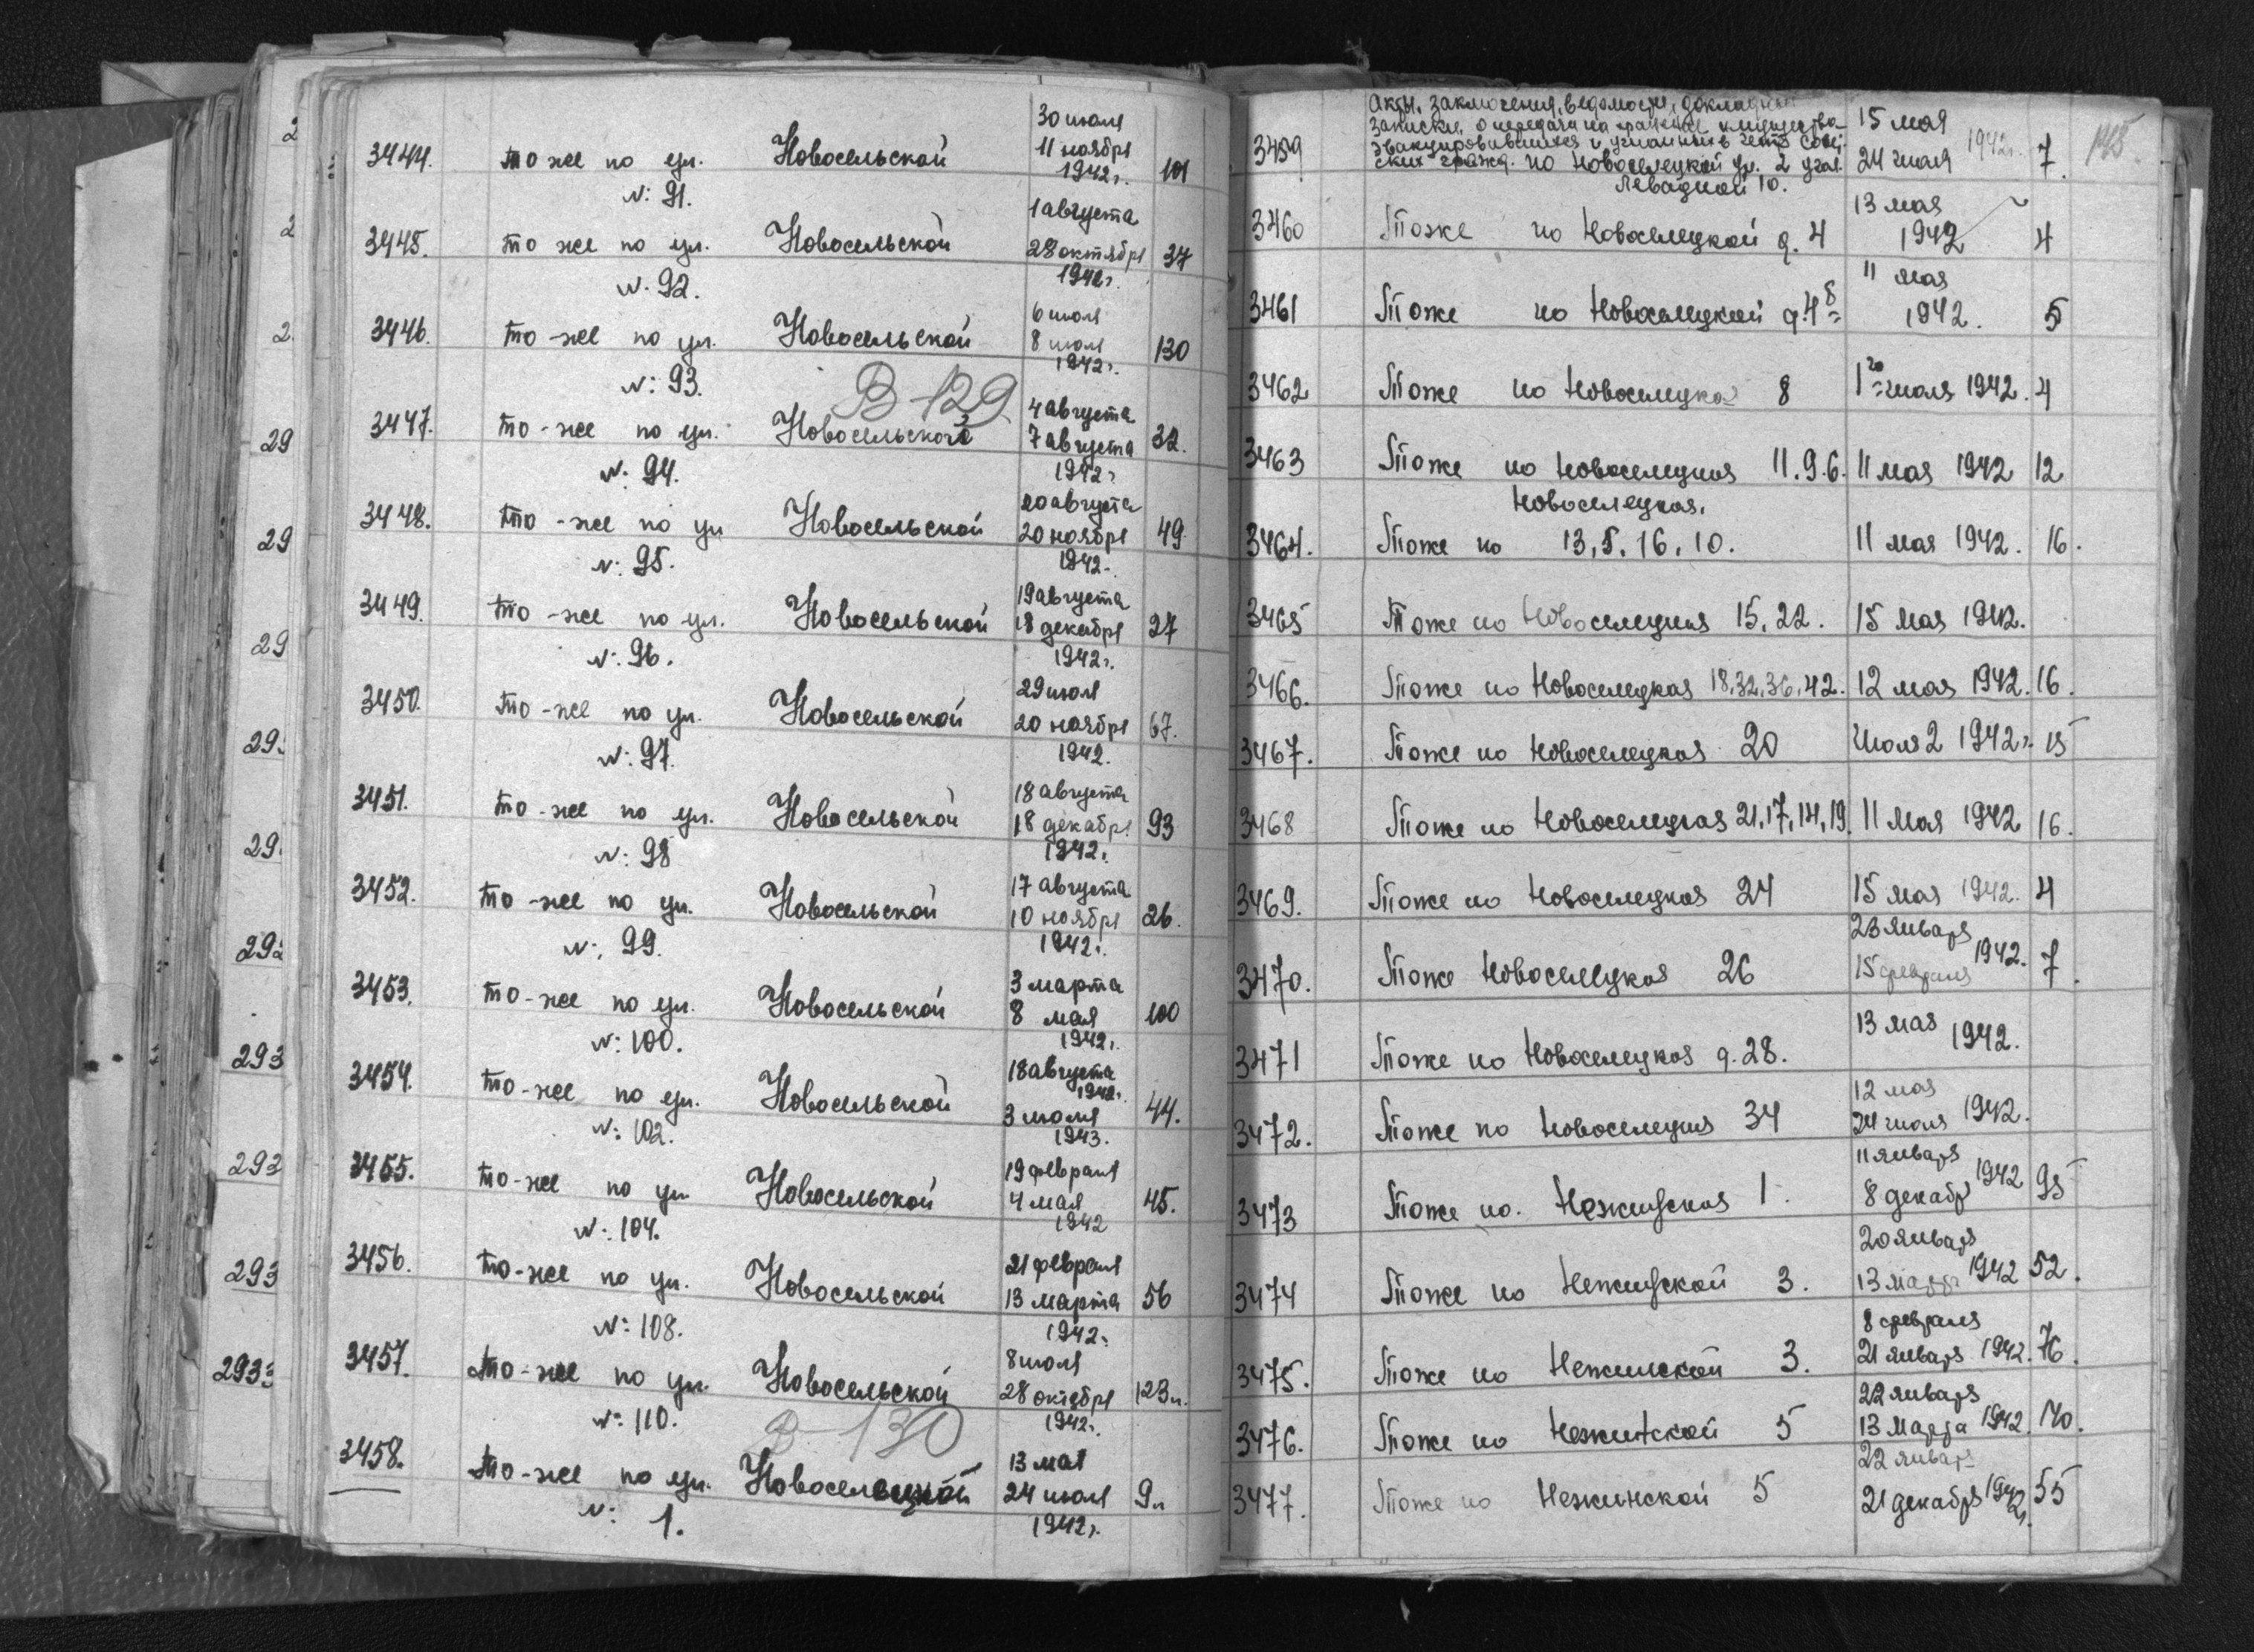 30 июля
3444. то же по ул. Новосельской 11 ноября 101
№: 91. 1942г.
1 августа
3445. то же по ул. Новосельской 28 октября 37
№. 92. 1942г.
6 июля
3446. то-же по ул. Новосельской 8 июля 130
№: 93. 1942г.
В-129
4 августа
3447. то-же по ул. Новосельской 7 августа 32.
№. 94. 1942г
20 августа
3448. то-же по ул Новосельской 20 ноября 49
№: 95. 1942.
19 августа
3449. то-же по ул. Новосельской 18 декабря 27
№: 96. 1942г.
29 июля
3450. то-же по ул. Новосельской 20 ноября 67.
№: 97. 1942.
18 августа
3451. то-же по ул. Новосельской 18 декабря 93
№: 98 1942г.
17 августа
3452. то-же по ул. Новосельской 10 ноября 26.
№: 99. 1942г.
3 марта
3453. то-же по ул. Новосельской 8 мая 100
№: 100. 1942г.
18 августа
1942г.
3454. то-же по ул. Новосельской 3 июля 44.
№: 102. 1943.
19 февраля
3455. то-же по ул Новосельской 4 мая 45.
№: 104. 1942
21 февраля
3456. то-же по ул. Новосельской 13 марта 56
№: 108. 1942г.
8 июля
3457. то-же по ул. Новосельской 28 октября 123л.
№: 110. 1942г.
В-130
13 мая
3458. то-же по ул. Новоселецкой 24 июля 9л
№: 1. 1942г.
2
2
2.
29
29
29
29.
29.
292
293
293
293
2933
145.
Акты, заключения, ведомости, докладные
записки, о передачи на хранение имущества 15 мая
3459 эвакуировавшихся и угнанных в гетто Совет- 1942г. 7
ских гражд. по Новоселецкой ул. 2 угол. 24 июля
Левадной 10.
13 мая
3460 Тоже по Новоселецкой д. 4 1942 4
11 мая
3461 Тоже по Новоселецкой д. 4 8 1942. 5
3462 Тоже по Новоселецкая 8 1го июля 1942. 4
3463 Тоже по Новоселецкая 11.9.6. 11 мая 1942 12
Новоселецкая.
3464. Тоже по 13, 5, 16, 10. 11 мая 1942. 16.
3465 Тоже по Новоселецкая 15, 22. 15 мая 1942.
3466. Тоже по Новоселецкая 18, 32, 36, 42. 12 мая 1942. 16.
3467. Тоже по Новоселецкая 20 Июля 2 1942г. 15
3468 Тоже по Новоселецкая 21, 17, 14, 19. 11 мая 1942 16.
3469. Тоже по Новоселецкая 24 15 мая 1942. 4
23 января
3470. Тоже Новоселецкая 26 15 февраля 1942. 7.
3471 Тоже по Новоселецкая д. 28. 13 мая 1942.
12 мая
3472. Тоже по Новоселецкая 34 24 июля 1942.
11 января
3473 Тоже по. Нежинская 1. 8 декабр 1942 95
20 января
3474 Тоже по Нежинской 3. 13 марта 1942 52.
8 февраля
3475. Тоже по Нежинской 3. 21 января 1942. 76.
22 января
3476. Тоже по Нежинской 5 13 Марта 1942. 140.
22 января
3477. Тоже по Нежинской 5 21 декабря 1942г. 55